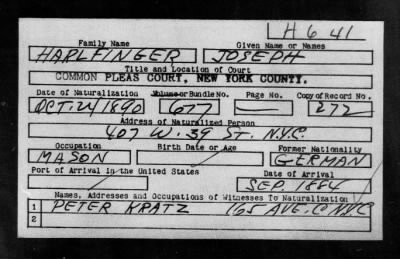 H 641
Family Name Given Name or Names
HARLFINGER JOSEPH
Title and Location of Court
COMMON PLEAS COURT, NEW YORK COUNTY.
Date of Naturalization Volume or Bundle No. Page No. Copy of Record No.
OCT. 21/1890 677 — 272
Address of Naturalized Person
407 W. 39 ST. N.Y.C.
Occupation Birth Date or Age Former Nationality
MASON GERMAN
Port of Arrival in the United States Date of Arrival
SEP. 1884
Names, Addresses and Occupations of Witnesses To Naturalization
1 PETER KRATZ 165 AVE. C N.Y.C
2